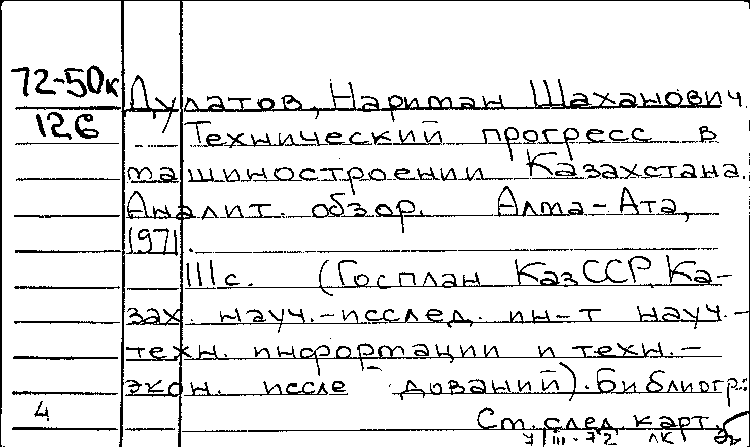 72-50к
126
Дулатов, Нариман Шаханович
Технический прогресс в
машиностроении Казахстана.
Аналит. обзор. Алма-Ата,
1971.
111с. (Госплан КазССР. Ка-
зах. науч.-исслед. ин-т науч.-
техн. информации и техн.-
экон. иссле дований). Библиогр.:
4
См. след. карт.
7/III-72 лк